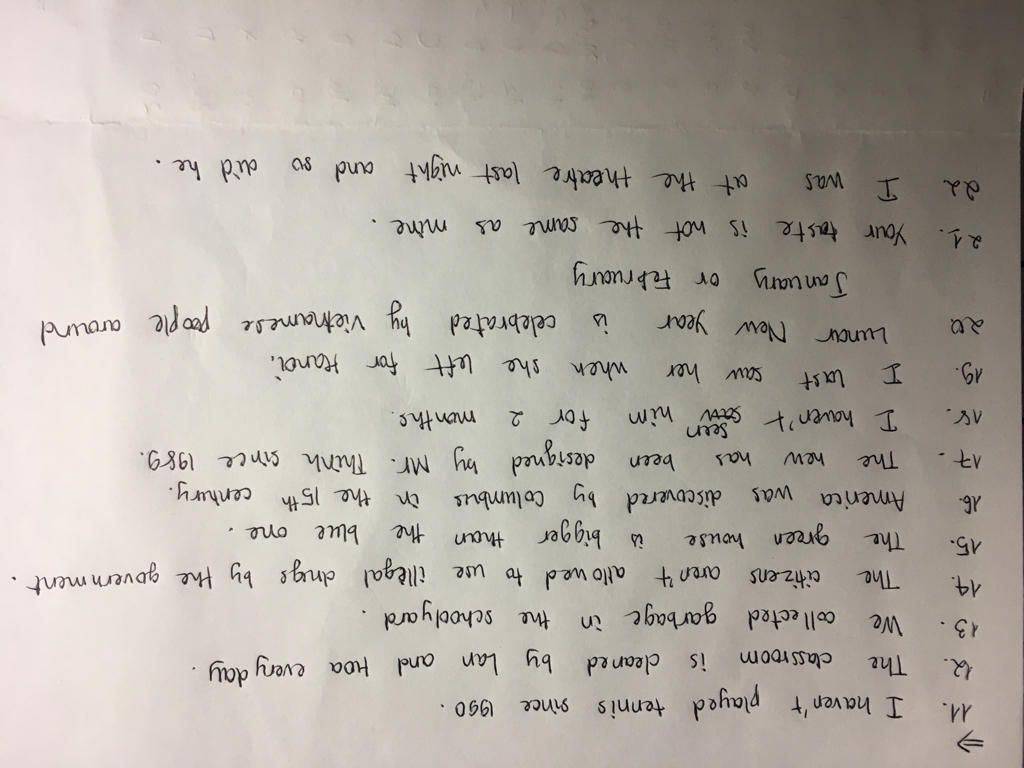 ⇒
11. I haven't played tennis since 1990.
12. The classroom is cleaned by Lan and Hoa everyday.
13. We collected garbage in the schoolyard.
14. The citizens aren't allowed to use illegal drugs by the government.
15. The green house is bigger than the blue one.
16. America was discovered by Columbus in the 15th century.
17. The new has been designed by Mr. Thinh since 1989.
18. I haven't seen him for 2 months.
19. I last saw her when she left for Hanoi.
20. Lunar New year is celebrated by Vietnamese people around
January or February
21. Your taste is not the same as mine.
22. I was at the theatre last night and so did he.